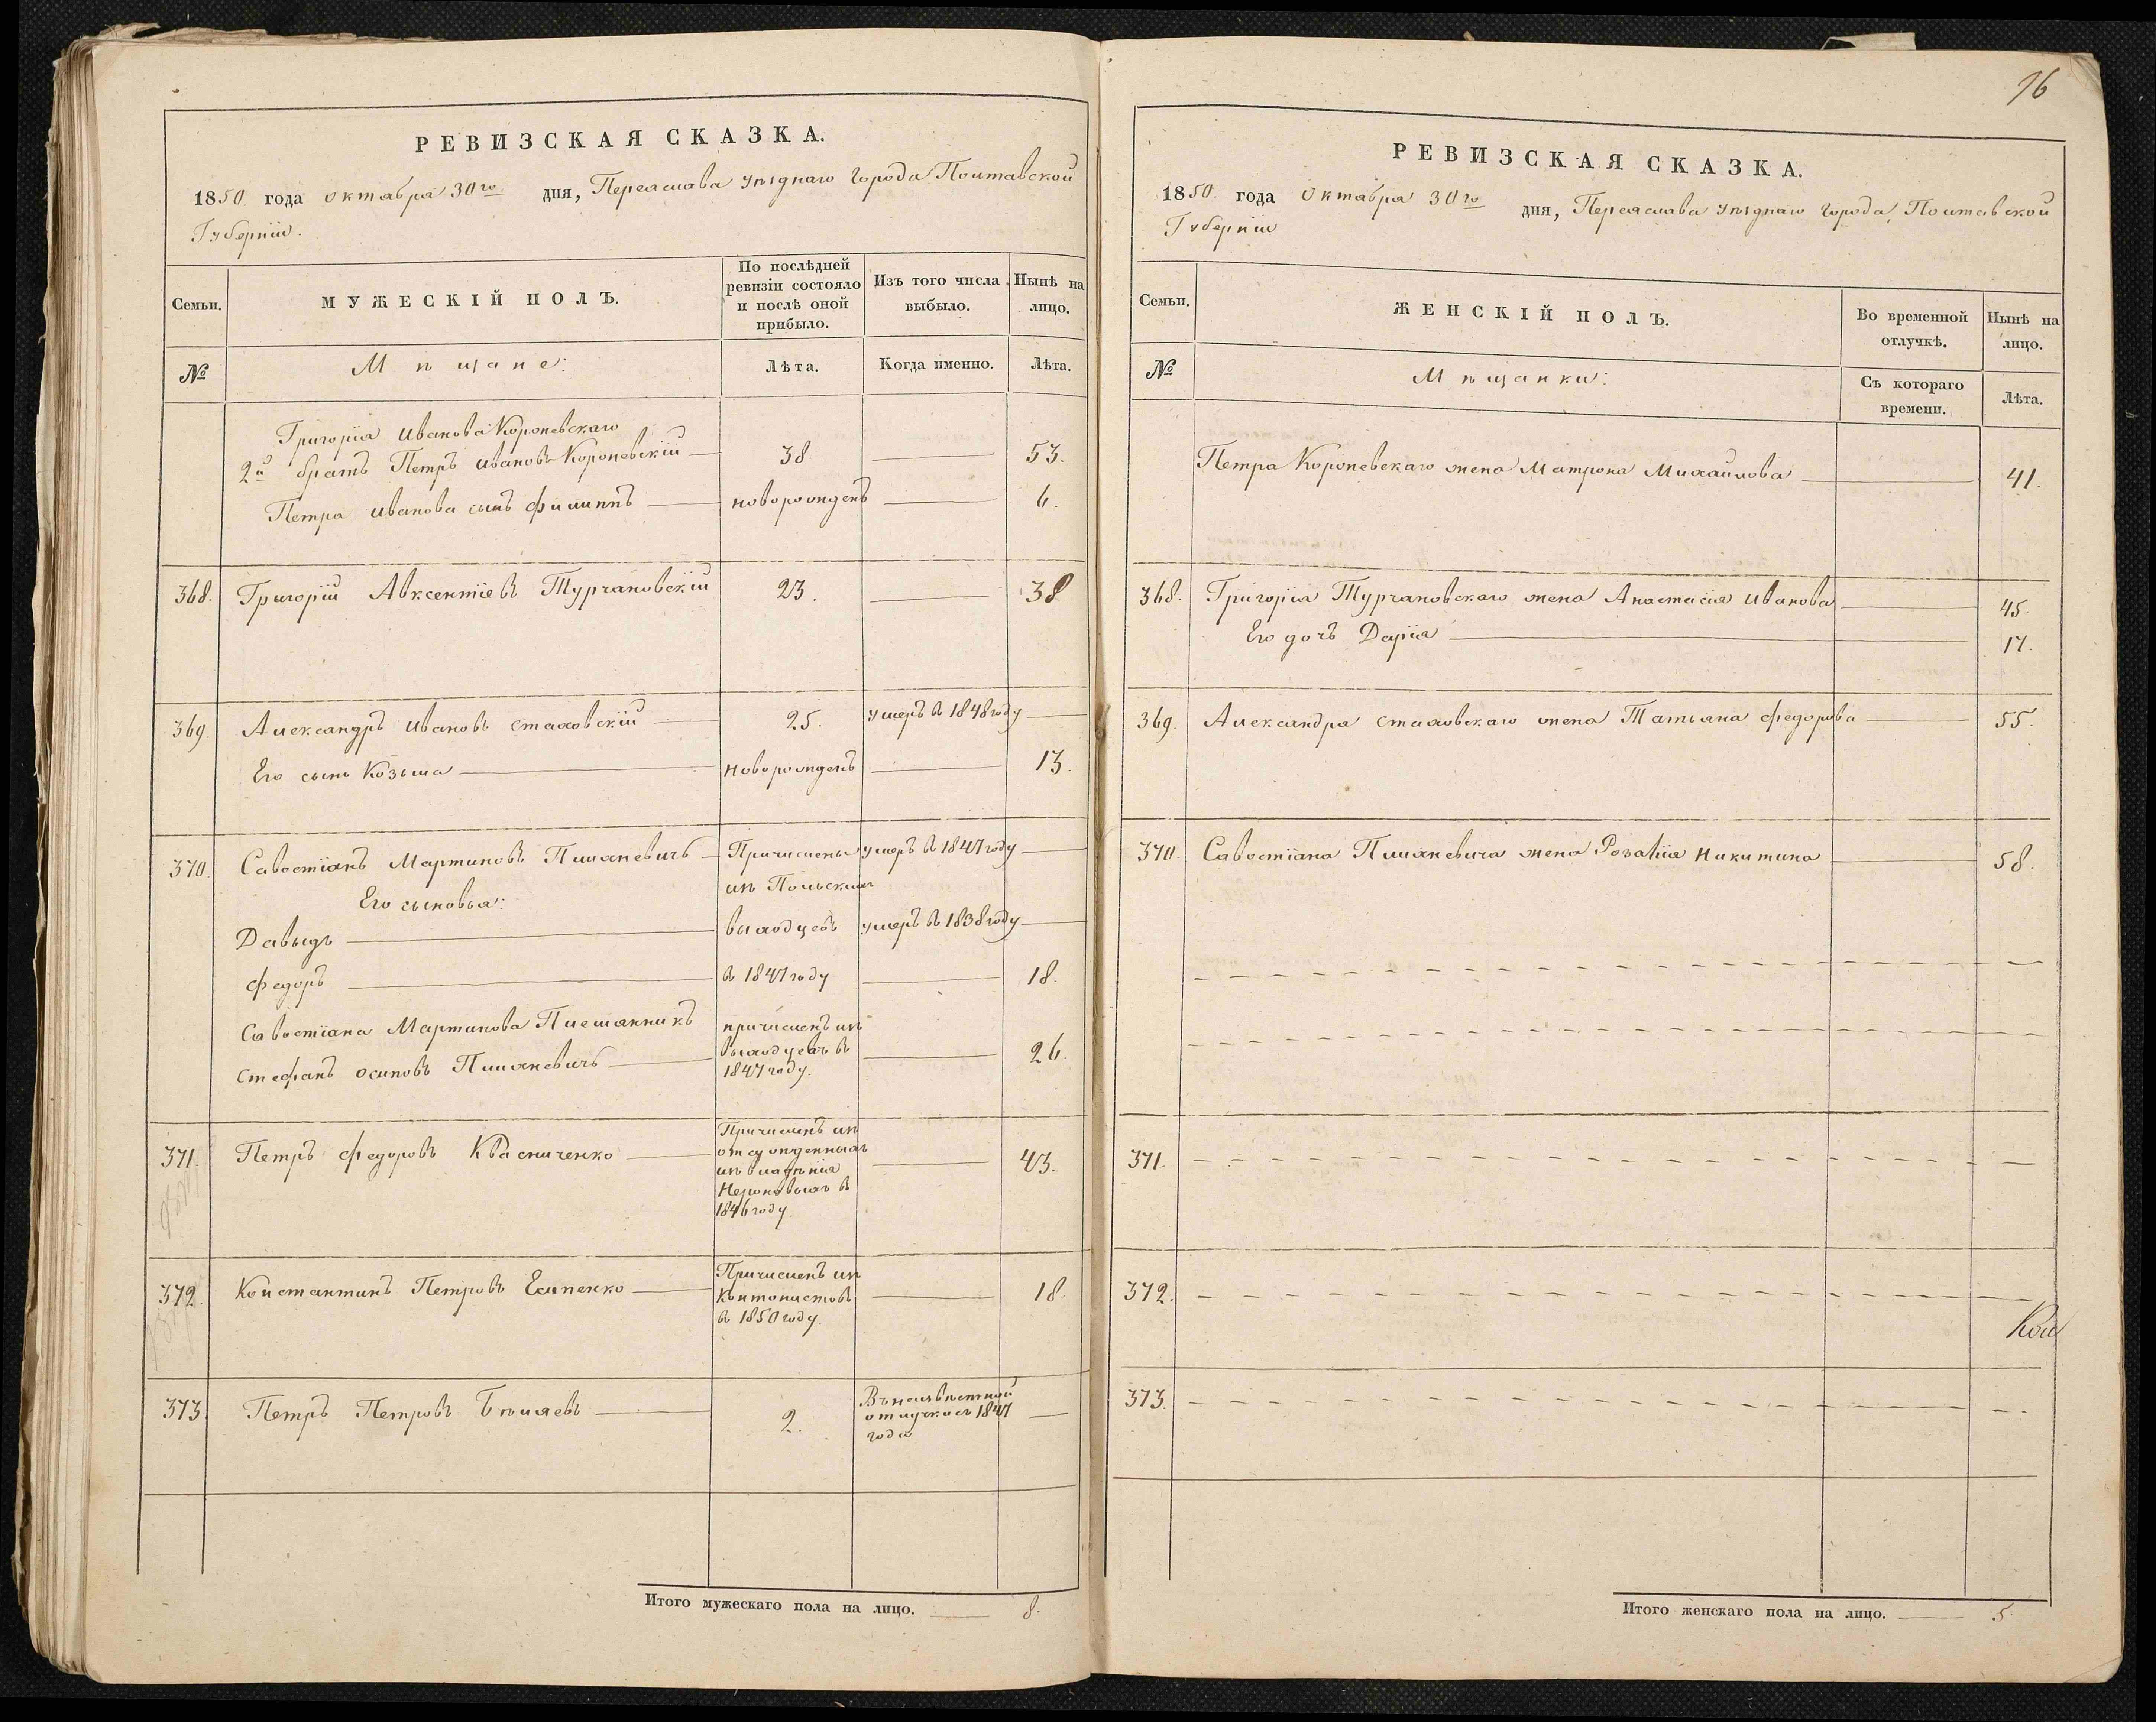 РЕВИЗСКАЯ СКАЗКА.
1850 года октабря 30го дня, Переяслава уѣзднаго города Полтавской
Губерніи.
Семьи.
МУЖЕСКІЙ ПОЛЪ.
По послѣдней
ревизіи состояло
и послѣ оной
прибыло.
Изъ того числа
выбыло.
Нынѣ на
лицо.
№
Мѣщане:
Лѣта.
Когда именно.
Лѣта.
Григорія Иванова Короневскаго
2й братъ Петръ Ивановъ Короневскій 38. 53.
Петра Иванова сынъ Филиппъ новорожденъ 6.
368. Григорій Авксентіевъ Турчановскій 23. 38
369. Александръ Ивановъ Стаховскій 25. умеръ въ 1848 году
Его сынъ Козьма новорожденъ 13.
370. Савостіанъ Мартиновъ Пиляневичъ Причислены умеръ въ 1847 году
Его сыновья: изъ Польскихъ
Давыдъ выходцевъ умеръ въ 1838 году
Федоръ въ 1847 году 18.
Савостіана Мартинова Племянникъ причисленъ изъ
Стефанъ Осиповъ Пиляневичъ выходцевъ въ 26.
1847 году.
Причисленъ изъ
371. Петръ Федоровъ Квасниченко отсужденныхъ 43.
изъ владѣнія
въ
1846 году.
372. Константинъ Петровъ Есипенко Причисленъ изъ 18.
Кантонистовъ
въ 1850 году.
373. Петръ Петровъ Бѣляевъ 2. Въ неизвѣстной
отлучкѣ съ 1847
года
Итого мужескаго пола на лицо. 8.
96
РЕВИЗСКАЯ СКАЗКА.
1850 года Октабря 30го дня, Переяслава уѣзднаго города, Полтавской
Губерніи
Семьи.
ЖЕНСКІЙ ПОЛЪ.
Во временной
отлучкѣ.
Нынѣ на
лицо.
№
Мѣщанки:
Съ котораго
времени.
Лѣта.
Петра Короневскаго жена Матрона Михайлова 41.
368. Григорія Турчановскаго жена Анастасія Иванова 45.
Его дочь Дарія 17.
369. Александра Стаховскаго жена Татьяна Федорова 55.
370. Савостіана Пиляневича жена Розалія Никитина 58.
371.
372.
373.
Итого женскаго пола на лицо. 5.